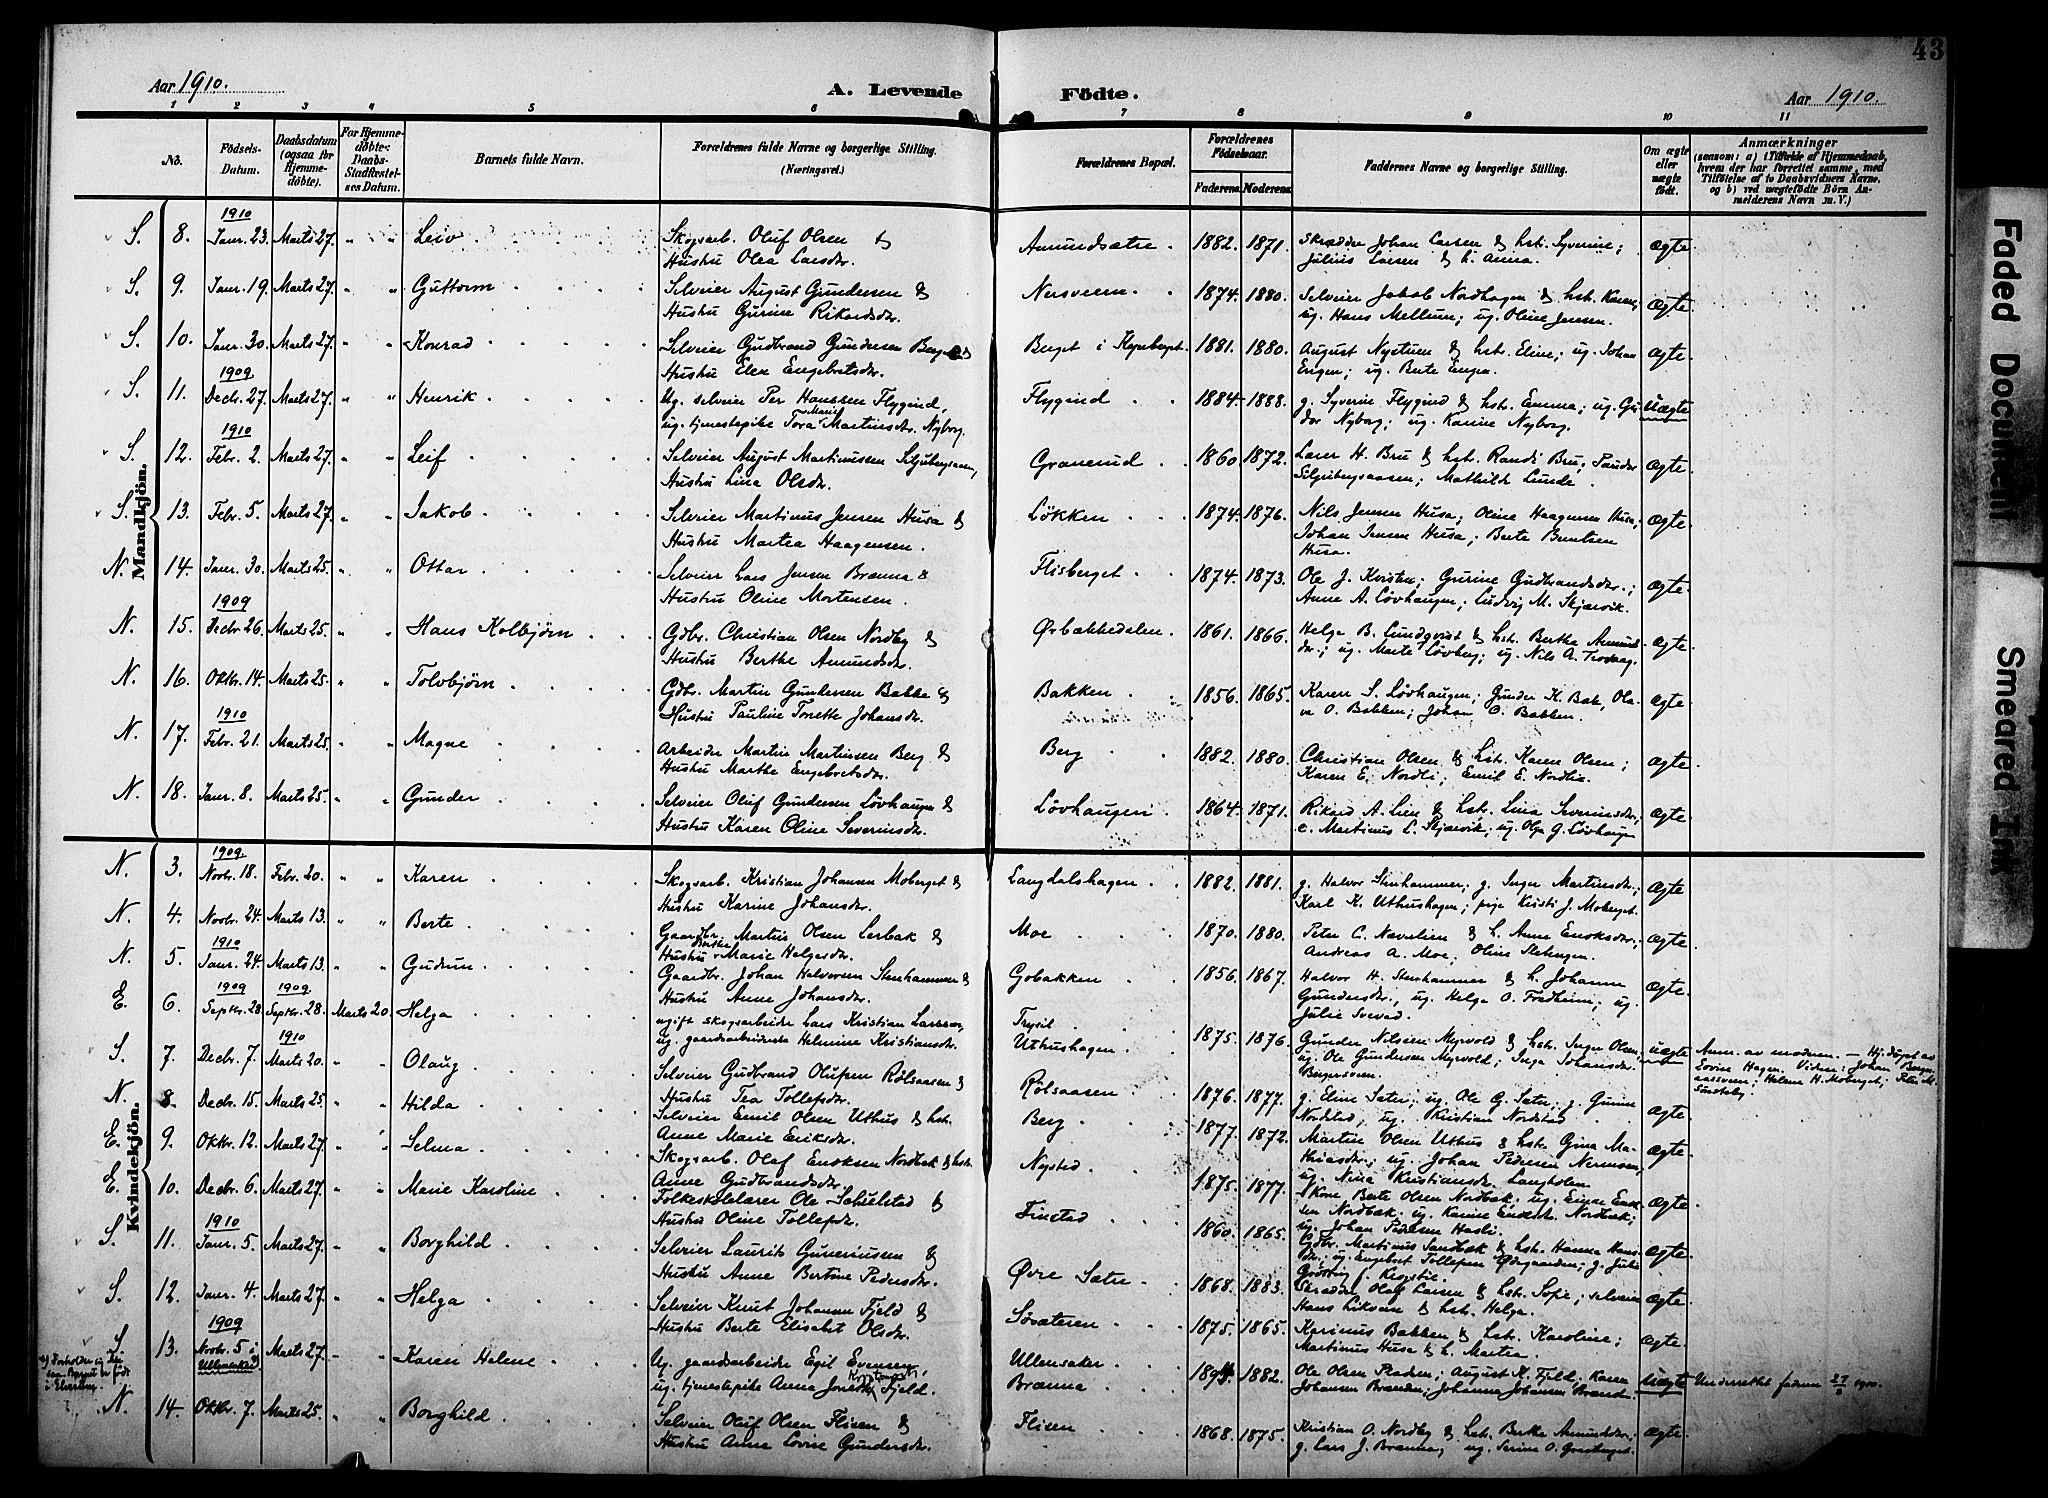 43
Aar 1910.
A. Levende Födte.
Aar 1910.
1 2 3 4 5 6 7 8 9 10 11
No.
Födsels-Datum.
Daabsdatum (ogsaa for Hjemmedöbte).
For Hjemmedöbte: Daabs-Stadfæstelses Datum.
Barnets fulde Navn.
Forældrenes fulde Navne og borgerlige Stilling. (Næringsvei.)
Forældrenes Bopæl.
Forældrenes Födselsaar.
Faderens. Moderens.
Faddernes Navne og borgerlige Stilling.
Om ægte eller uægte födt.
Anmærkninger
(saasom: a) i Tilfælde af Hjemmedaab, hvem der har forrettet samme, med Tilföielse af to Daabsvidners Navne, og b) ved uægtefödte Börn Anmelderens Navn m. V.)
Mandkjön.
1910
S. 8. Janr. 23. Marts 27. " " Leiv Skogsarb. Oluf Olsen & Amundsætre 1882. 1871. Skrædder Johan Larsen & hst. Syverine; Ægte
Hustru Olea Larsdr. Julius Larsen & h. Anna.
S. 9. Janr. 19. Marts 27. " " Guttorm Selveier August Gundersen & Nersveen 1874. 1880. Selveier Jakob Nordhagen & hst. Karen; Ægte.
Hustru Gurine Rikardsdr. ug. Hans Mellum; ug. Oline Jensen.
S. 10. Janr. 30. Marts 27. " " Konrad Selveier Gudbrand Gundersen Berget & Berget i Kynberget. 1881. 1880. August Nystuen & hst. Eline; ug. Johan Ægte
Hustru Elea Engebretsdr. ug. Berte
1909
S. 11. Decbr. 27. Marts 27. " " Henrik Ug. selveier Per Hanssen Flygind, Flygind 1884. 1888. g. Syverine Flygind & hst. Emma; ug. Uægte
ug. tjenestepike Tora Marie Martinsdr. Nyborg. Nyborg; ug. Karine Nyborg.
1910
S. 12. Febr. 2. Marts 27. " " Leif Selveier August Martinussen Siljubergsaasen, Granerud 1860 1872. Lars H. Bru & hst. Randi Bru; Ægte
Hustru Lina Olsdr. Siljubergsaasen; Mathilde Lunde.
S. 13. Febr. 5. Marts 27. " " Jakob Selveier Martinus Jensen Husa & Løkken 1874. 1876. Nils Jensen Husa; Oline Haagensen Husa, Ægte
Hustru Martea Haagensen. Johan Jensen Husa; Berte Berntsen
Husa.
N. 14. Janr. 30. Marts 25. " " Ottar Selveier Lars Jensen Brænna & Flisberget 1874. 1873. Ole J. Kvisten; Gurine Gudbrandsdr.; Ægte.
Hustru Oline Mortensen. Anne A. Løvhaugen; Ludvig M. Skjærvik.
1909
N. 15. Decbr. 26. Marts 25. " " Hans Kolbjørn Gdbr. Christian Olsen Nordby & Ørbækkedalen 1861. 1866. Helge B. Lundqvist & hst. Berthe Amunds- Ægte
Hustru Berthe Amundsdr. dr.; ug. Marte Løvberg; ug. Nils A.
N. 16. Oktbr. 14. Marts 25. " " Torbjørn Gdbr. Martin Gundersen Bakke & Bakken 1856. 1865. Karen S. Løvhaugen; Gunder K. Bak, Ola- Ægte
Hustru Pauline Torette Johansdr. va O. Bakken; Johan O. Bakken.
1910
N. 17. Febr. 21. Marts 25. " " Magne Arbeider Martin Martinsen Berg & Berg 1882. 1880. Christian Olsen & hst. Karen Olsen; Ægte.
Hustru Marthe Engebretsdr. Karen E. Nordli; Emil E. Nordli.
N. 18. Janr. 8. Marts 25. " " Gunder Selveier Oluf Gundersen Løvhaugen & Løvhaugen 1864. 1871. Rikard A. Lien & hst. Lina Severinsdr.; Ægte
Hustru Karen Oline Severinsdr. e. Martinus L. Skjærvik; ug. Olga G. Løvhaugen
Kvindekjön.
1909.
N. 3. Novbr. 18. Febr. 20. " " Karen Skogsarb. Kristian Johansen Moberget & Langdalshagen 1882. 1881. g. Halvor Stenhammer; g. Inger Martinsdr.; Ægte
Hustru Karine Johansdr. Karl K. Uthushagen; pige Kristi J. Moberget.
N. 4. Novbr. 24. Marts 13. " " Berte Gaardbr. Martin Olsen Lerbak & Moe 1870. 1880. Peter C. Næverlien & h. Anne Eriksdr.; Ægte.
Hustru Berthe Marie Helgesdr. Andreas A. Moe; Oline
1910
N. 5. Janr. 24. Marts 13. " " Gudrun Gaardbr. Johan Halvorsen Stenhammer & Gobakken 1856. 1867. Halvor H. Stenhammer & h. Johanne Ægte
Hustru Anne Johansdr. Gundersdr.; ug. Helga O. Fredheim; ug.
Julie
1909 1909
E. 6. Septbr. 28. Septbr. 28. Marts 20. Helga ugift skogsarbeider Lars Kristian Larssen, Trysil 1875. 1876. Gunder Nilsen Myrvold & hst. Inger Olsen, uægte Anm. av moderen. — Hj.døpt av
ug. gaardsarbeiderske Helmine Kristiansdr. Uthushagen ug. Ole Gundersen Myrvold; Inga Johansdr. Lovise Hagen. Vidner: Johan
Bergersveen. Helene H. Moberget; Peter M.
1910
S. 7. Decbr. 7. Marts 20. " " Olaug Selveier Gudbrand Olufsen Rølsaasen & Rølsaasen 1876. 1877. g. Eline Sæter; ug. Ole G. Sæter; g. Gunine Ægte
Hustru Tea Tollefsdr. Nordstad; ug. Kristian Nordstad
N. 8. Decbr. 15. Marts 25. " " Hilda Selveier Emil Olsen Uthus & hst. Berg 1877. 1872. Martin Olsen Uthus & hst. Gina Ma- Ægte
Anne Marie Eriksdr. thiasdr.; ug. Johan Pedersen Nermoen,
ug. Nina Kristiansdr. Langholen
E. 9. Oktbr. 12. Marts 27. " " Selma Skogsarb. Olaf Eriksen Nordbæk & hst. Nysted 1875. 1877. Kone Berte Olsen Nordbæk. ug. Einar Erik- Ægte
Anne Gudbrandsdr. sen Nordbæk. ug. Karine Nordbæk;
ug. Johan Pedersen Hasli.
E. 10. Decbr. 6. Marts 27. " " Marie Karoline Folkeskolelærer Ole Schulstad & Finstad 1860. 1865. Gdbr. Martinus Sandbæk & hst. Hanna Hans- Ægte
Hustru Oline Tollefsdr. dr.; ug. Engebret Tollefsen Ødegaarden; g. Julie
1910
S. 11. Janr. 5. Marts 27. " " Borghild Selveier Laurits Guneriussen & Øvre Sætre 1868. 1883. Skrædder Olaf Larsen & hst. Sofie; selveier Ægte
Hustru Anne Bertine Pedersdr. Hans Likveen & hst. Helga.
S. 12. Janr. 4. Marts 27. " " Helga Selveier Knut Johansen Fjeld & Søsæteren 1875. 1865. Karinus Bakken & hst. Karoline; Ægte
Hustru Berte Elisabet Olsdr. Martinus Husa & h. Martea.
1909
S. 13. Novbr. 5 i Marts 27. " " Karen Helene Ug. gaardsarbeider Egil Evensen, Ullensaker 1882. Ole Olsen Pladen; August K. Fjeld, Karen Uægte Underrettet faderen 27/8 1910.
Ullensaker*) ug. tjenestepike Anna Fjeld. Brænna Johansen Brænden; Johanne Johansen
*) Forholder sig
i Elverum.
N. 14. Oktbr. 7. Marts 25. " " Borghild Selveier Oluf Olsen Flisen & Flisen 1868. 1875. Kristian O. Nordby & hst. Berthe Amundsdr.; Ægte.
Hustru Anne Lovise Gundersdr. g. Lars J. Brænna; ug. Serine O.
Faded Document
Smeared Ink